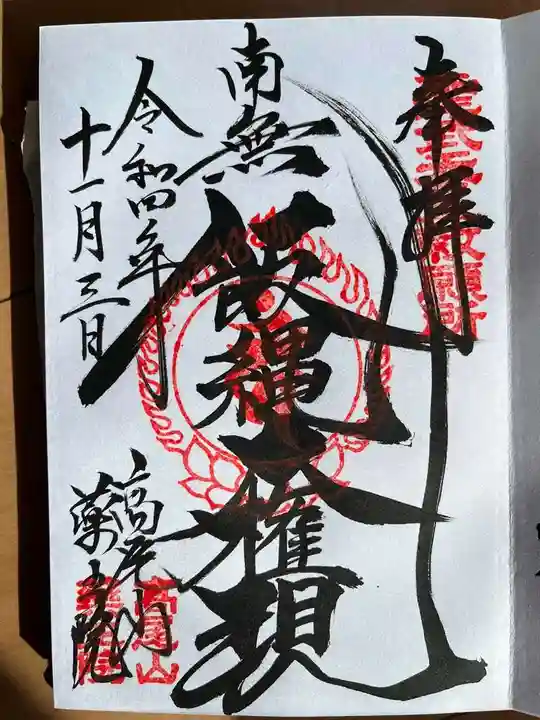 奉拝
南無飯縄大権現
令和四年
十一月三日
高尾山
薬王院